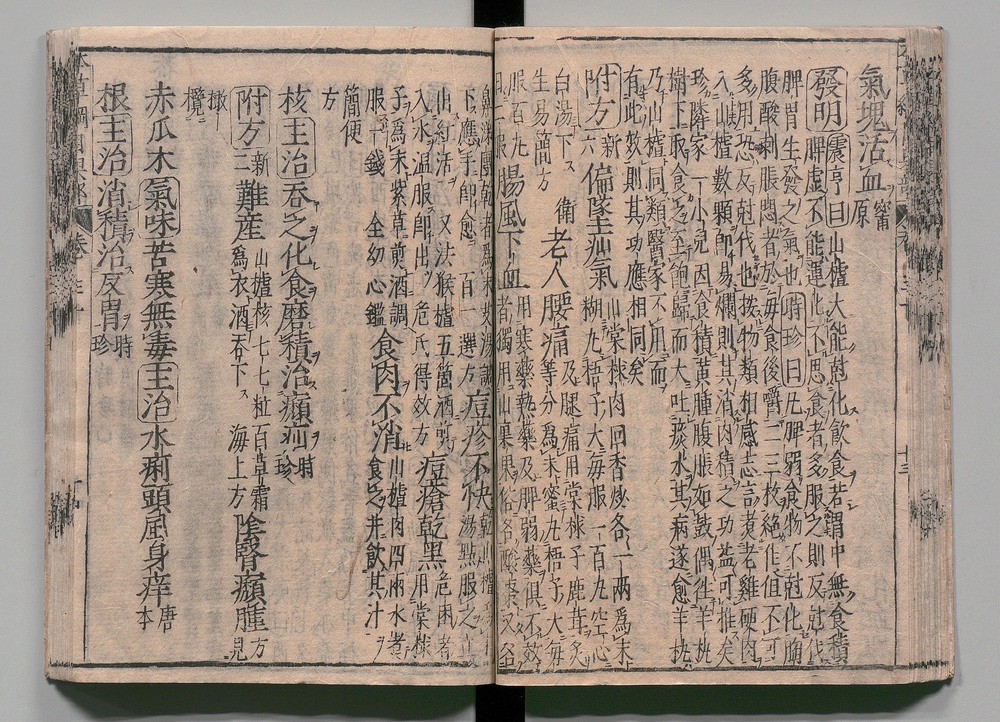 氣塊活血甯原
發明震亨曰山樝大能尅化飲食若胃中無食積
脾虛不能運化不思食者多服之則反尅伐
脾胃生發之氣也時珍曰凡脾弱食物不尅化胸
腹酸刺脹悶者於每食後嚼二三枚絶佳但不可
多用恐反尅伐也按物類相感志言煑老雞硬肉
入山樝數顆即易爛則其消肉積之功益可推矣
珍隣家一小兒因食積黃腫腹脹如鼓偶往羊朹
樹下取食之至飽歸而大吐痰水其病遂愈羊朹
乃山樝同類醫家不用而
有此效則其功應相同矣
附方新六偏墜疝氣山棠梂肉囘香炒各一兩為末
糊丸梧子大每服一百丸空心
白湯下衛生易簡方老人腰痛及腿痛用棠梂子鹿茸炙
等分為末蜜丸梧子大每
服百丸
腸風下血用寒藥熱藥及脾弱藥俱不效
者獨用山裏果俗名酸棗又名
下應手即愈百一選方痘疹不快乾山樝
湯點服之立
出紅活又法猴樝五箇酒煎
入水温服即出危氏得效方痘瘡乾黑危困者
用棠梂
子為末紫草煎酒調
服一錢全幼心鑑食肉不消山樝肉四兩水煮
食之并飲其汁
簡便方
核主治吞之化食磨積治㿗疝時珍
附方新二難產山樝核七七粒百草霜
為衣酒吞下海上方陰腎㿗腫方見
橄欖
赤瓜木氣味苦寒無毒主治水痢頭風身痒唐本
根主治消積治反胃時珍